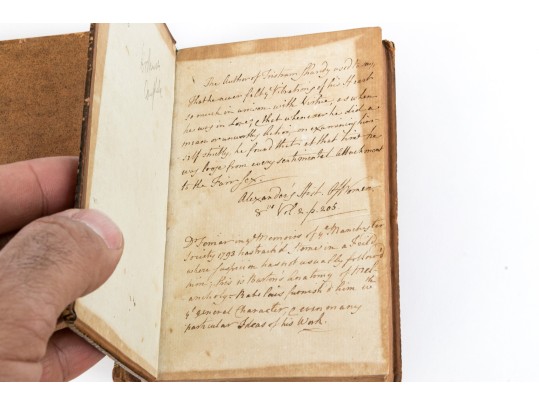 The Author of Tristram Shandy used to say,
that he never felt ye Vibrations of his Heart
so much in unison with Virtue, as when
he was in Love; & that whenever he did a
mean or unworthy Action, on examining him-
self strictly, he found that at that time he
was loose from every sentimental attachment
to the Fair Sex.
Alexander's Hist. Of Women
8vo Vol 2. p. 206.
Dr Ferriar in ye Memoirs of ye Manchester
Society 1793 has track'd Sterne in a Field,
where suspicion has not usually follow'd
him; this is Burton's Anatomy of Mel-
ancholy: Rabelais furnish'd him wth
ye general Character, & even many
particular Ideas of his Work.